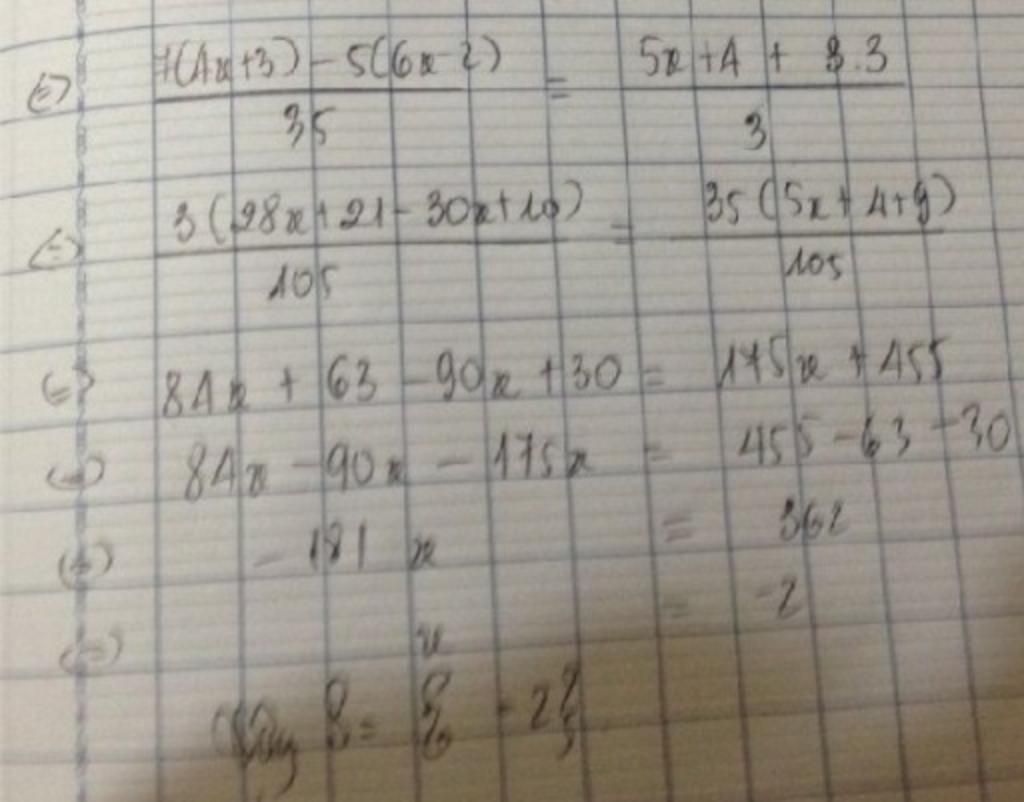 (=) 7(4x+3) - 5(6x-2) / 35 = 5x+4 + 3.3 / 3
(=) 3(28x+21-30x+10) / 105 = 35(5x+4+9) / 105
(=) 84x + 63 - 90x + 30 = 175x + 455
(=) 84x - 90x - 175x = 455 - 63 - 30
(=) -181 x = 362
(=) x = -2
Vậy S = { -2 }